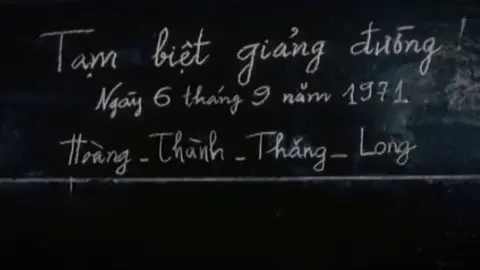 Tạm biệt giảng đường!
Ngày 6 tháng 9 năm 1971.
Hoàng - Thành - Thăng - Long